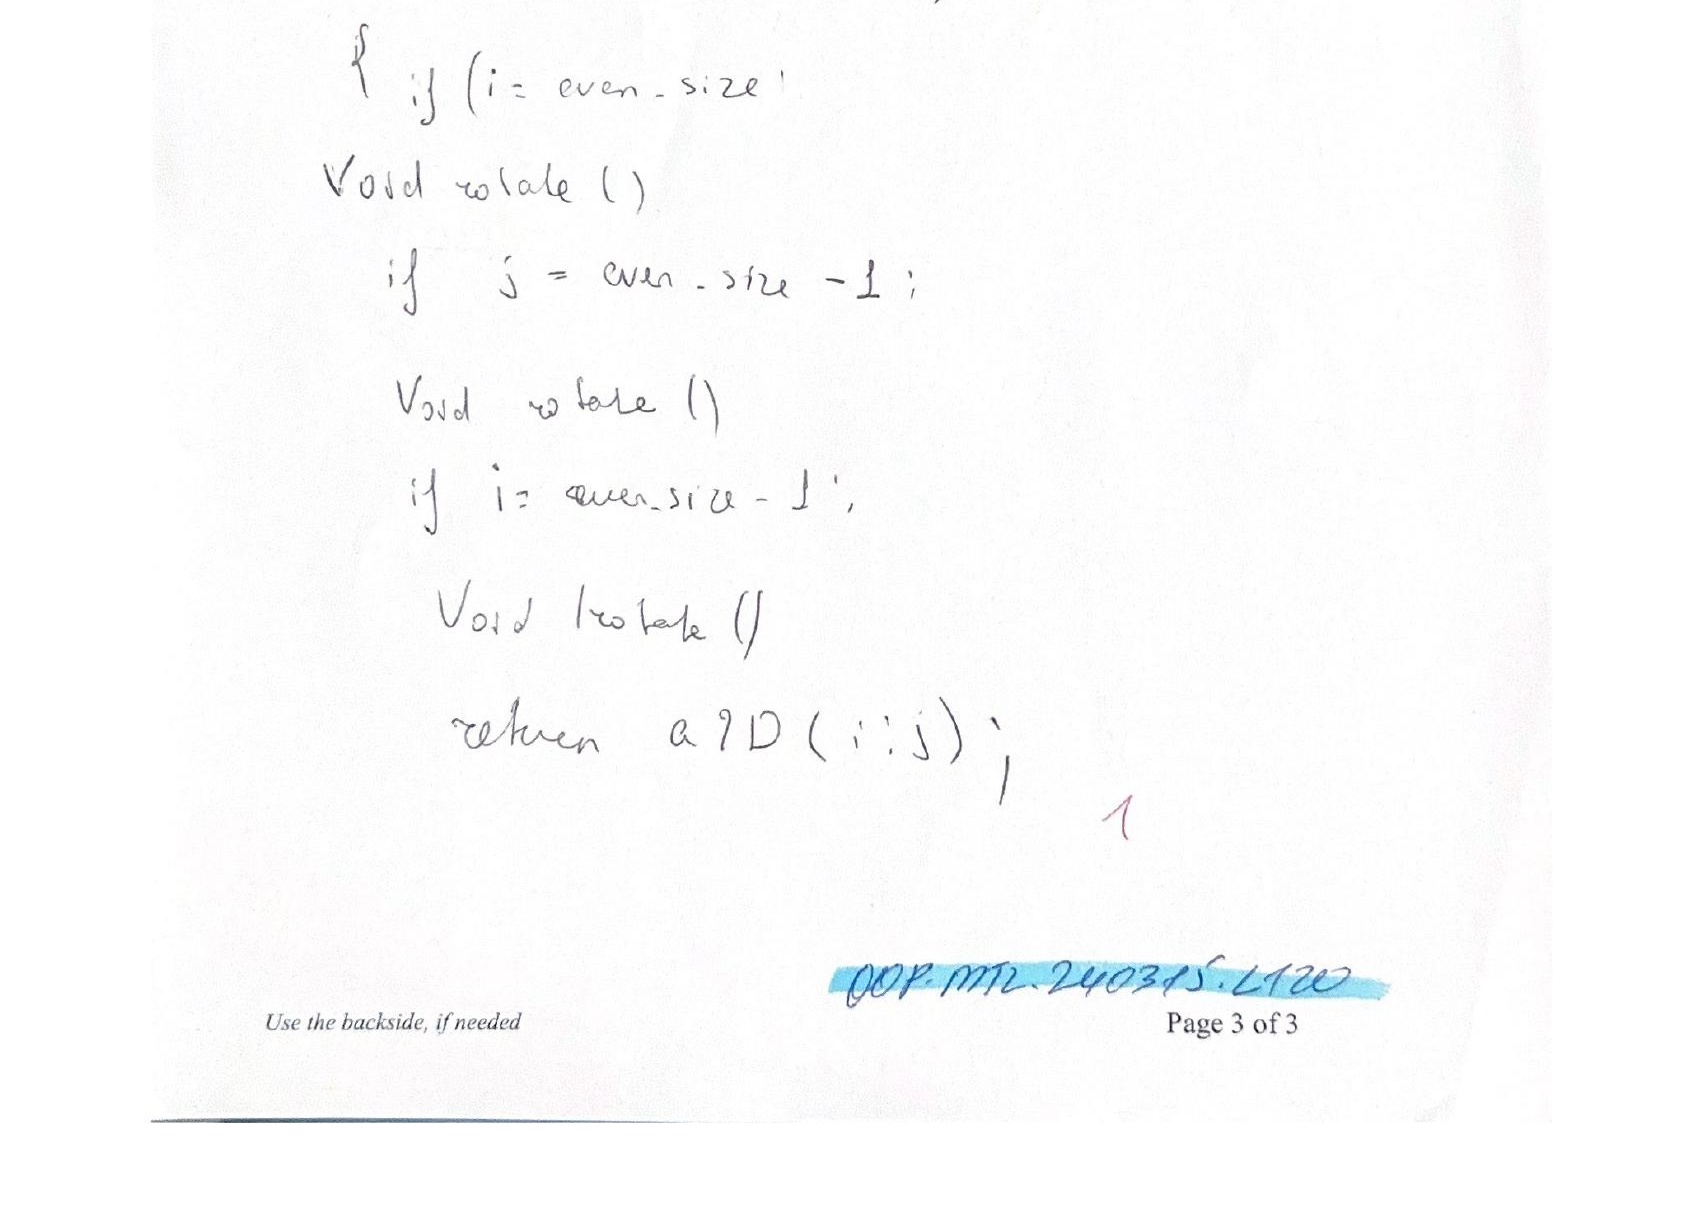 { if (i = even_size
Void rotate ()
if j = even_size -1;
Void rotate ()
if i = even_size - 1;
Void rotate ()
return a2D (i:j);
1
OOP.MT2.240315.L120
Use the backside, if needed
Page 3 of 3